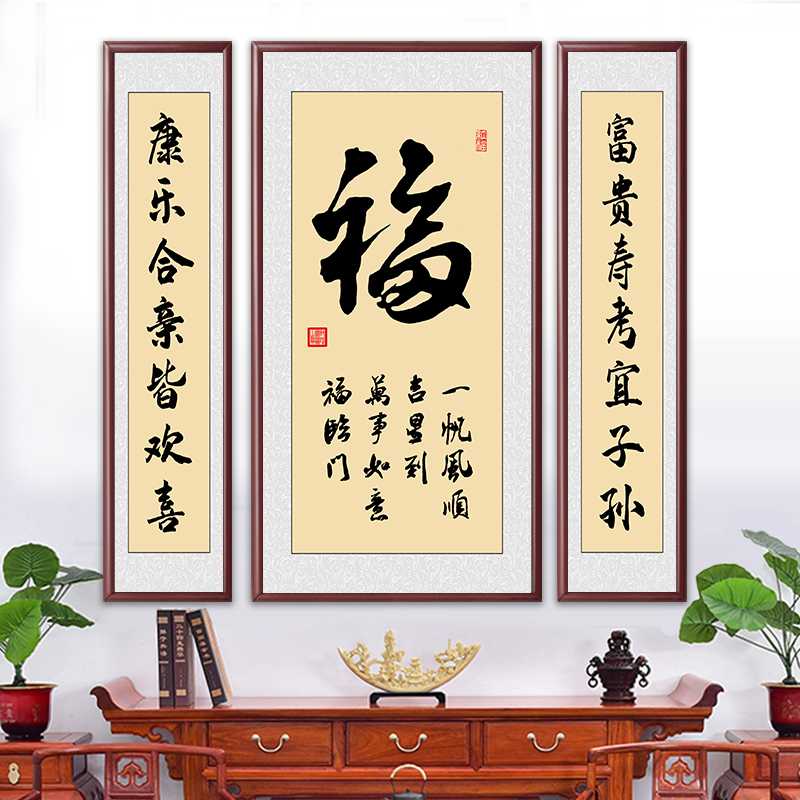 富贵寿考宜子孙
福
一帆風順
吉星到
萬事如意
福臨门
康乐合亲皆欢喜